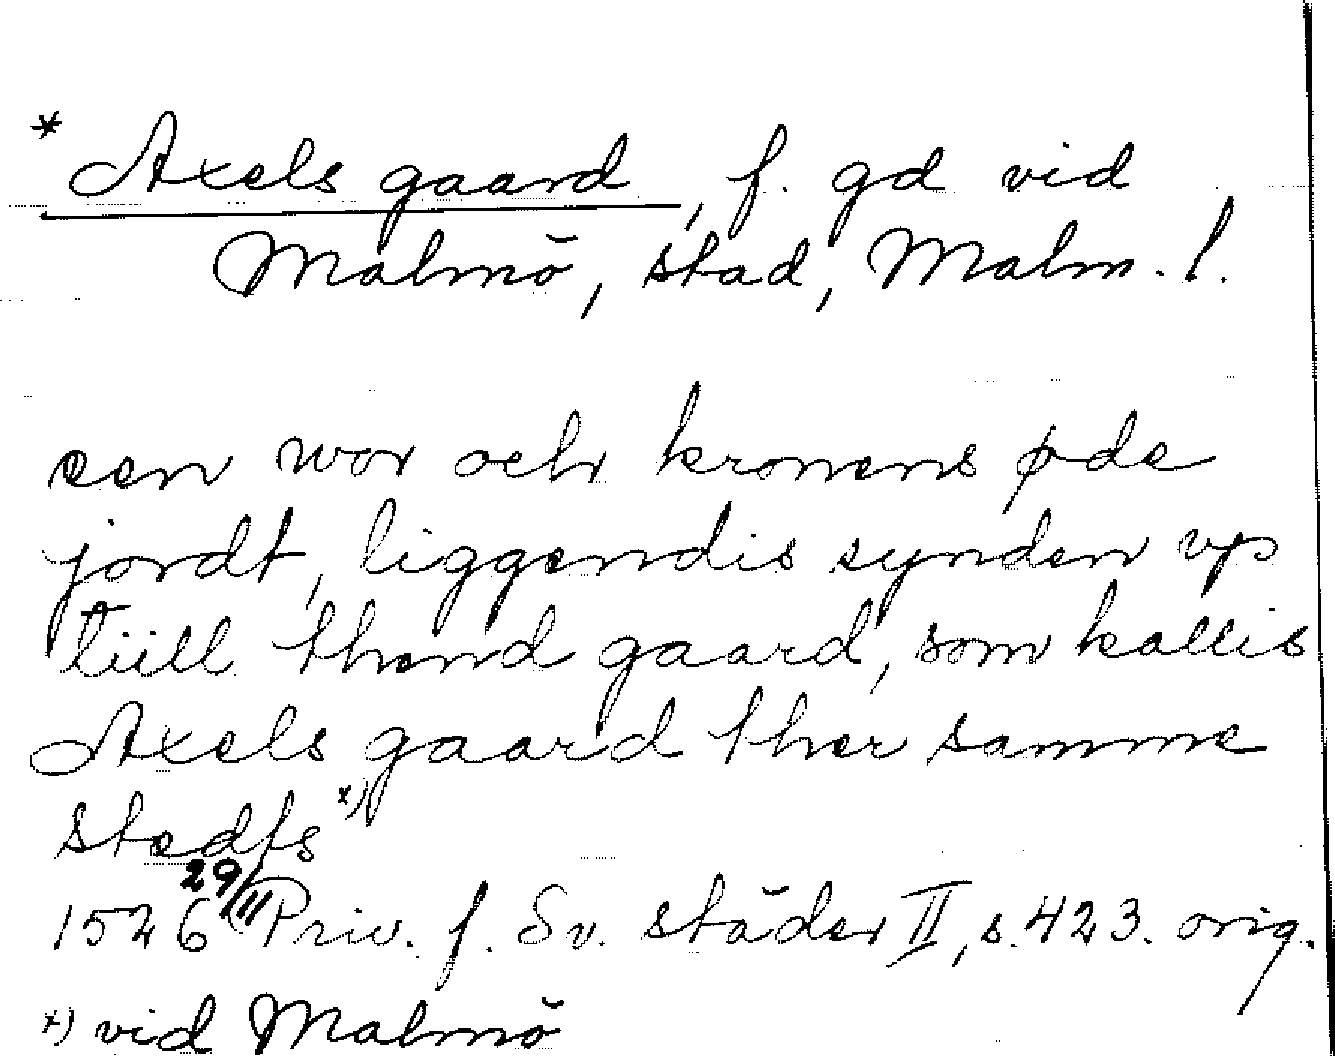 * Axels gaard, f. gd vid
Malmö, stad, Malm. l.
een wor och kronens øde
jordt, liggendis synden vp
tiill thend gaard, som kallis
Axels gaard ther samme
stedts x)
1526 29/11 Priv. f. Sv. städer II, s. 423. orig.
x) vid Malmö